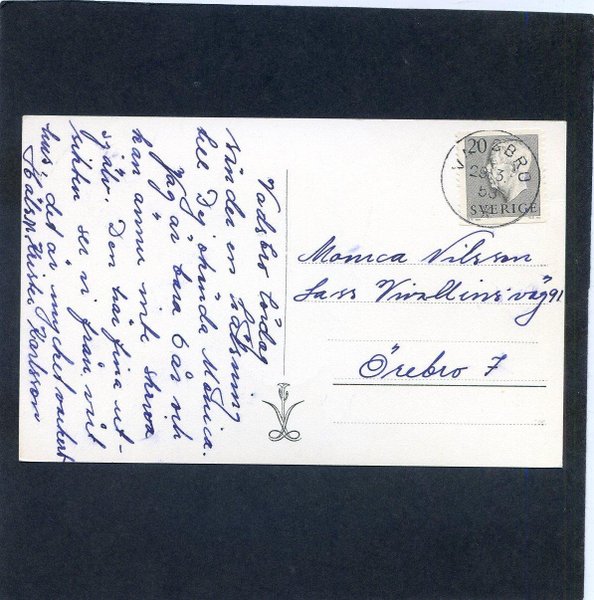 Vadsbro lördag
sänder en hälsning
till Dej okända Monica.
Jag är bara 6 år och
kan ännu inte skriva
själv. Den här fina ut-
sikten ser vi från vårt
hus, det är mycket vackert
Hälsn. Karlsson
20
SVERIGE
VADSBRO
28 3
Monica Nilsson
Lass Vivallius väg 91
Örebro 7